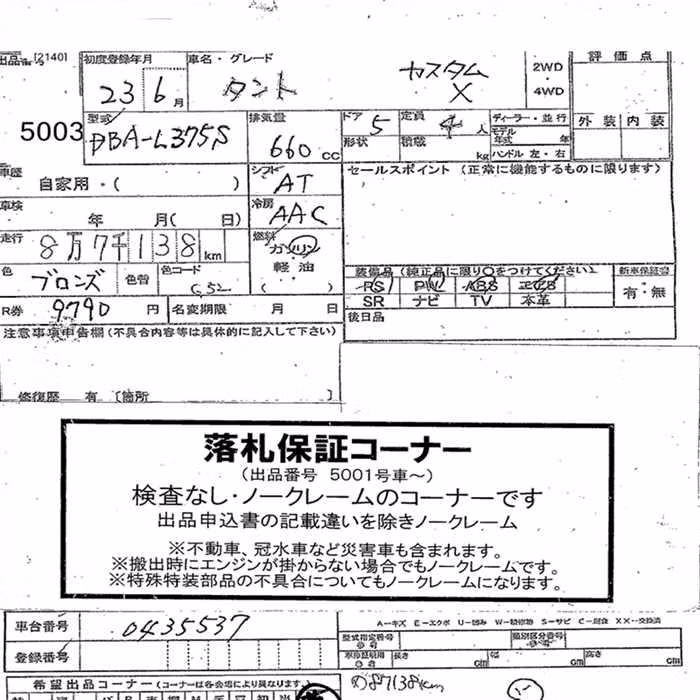 出品番号 [2140] 初度登録年月 車名・グレード 評価点
23 6月 タント カスタム X 2WD
・4WD
5003 型式 排気量 ドア 定員 ディーラー・並行 外装 内装
DBA-L375S 660cc 5 4人 モデル年式 年
形状 積載 kg ハンドル 左・右
車歴 自家用・( ) シフト AT セールスポイント (正常に機能するものに限ります)
車検 年 月( 日) 冷房 AAC
走行 8万7千138km 燃料 ガソリン
軽油
( )
色 ブロンズ 色替 色コード 装備品 (純正品に限り○をつけてください) 新車保証書
PS PW ABS エアB 有・無
R券 9790円 名変期限 月 日 SR ナビ TV 本革
注意事項申告欄(不具合内容等は具体的に記入して下さい) 後日品
修復歴 有 [箇所 ]
落札保証コーナー
(出品番号 5001号車~)
検査なし・ノークレームのコーナーです
出品申込書の記載違いを除きノークレーム
※不動車、冠水車など災害車も含まれます。
※搬出時にエンジンが掛からない場合でもノークレームです。
※特殊特装部品の不具合についてもノークレームになります。
車台番号 0435537 A-キズ E-エクボ U-凹み W-補修跡 S-サビ C-腐食 XX-交換済
型式指定番号 類別区分番号
登録番号 長さ cm 幅 cm 高さ cm
希望出品コーナー (コーナーは各会場により異なります) 87138km